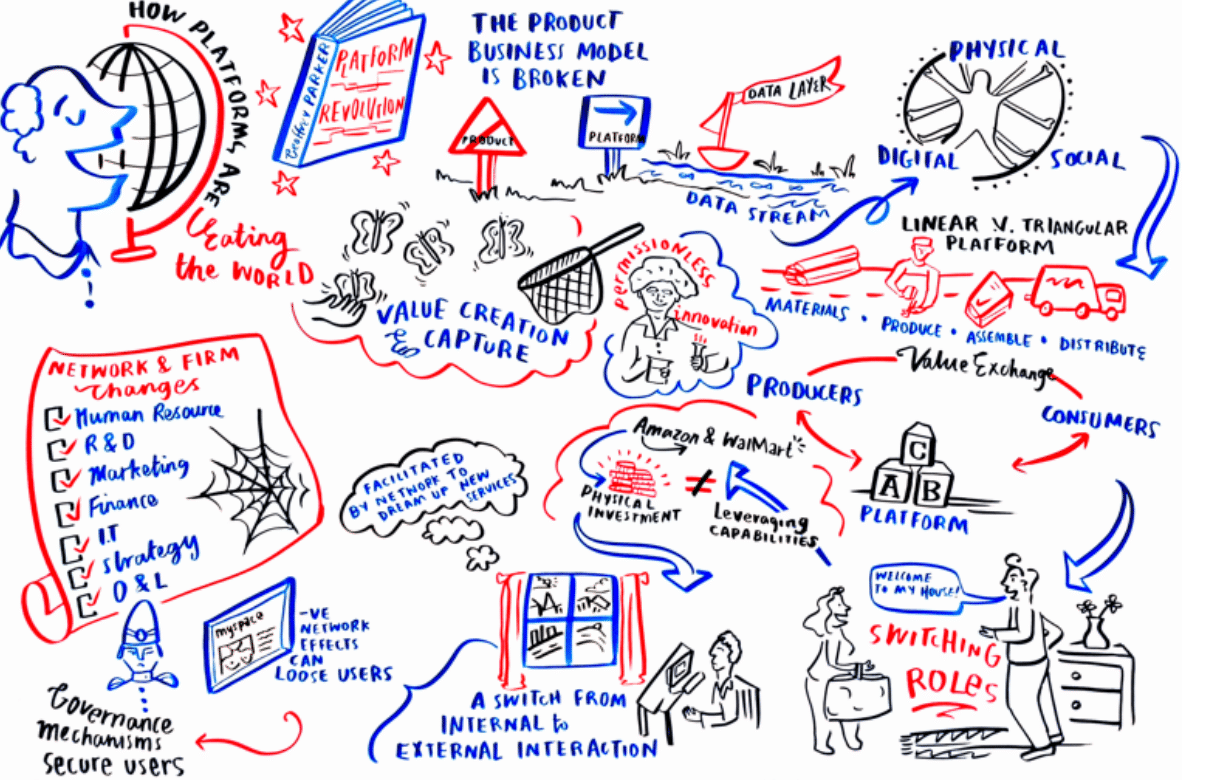 HOW PLATFORMS ARE
Eating
the WORLD
PARKER
PLATFORM
REVOLUTION
THE PRODUCT
BUSINESS MODEL
IS BROKEN
PRODUCT
PLATFORM
DATA LAYER
DATA STREAM
PHYSICAL
DIGITAL
SOCIAL
LINEAR V. TRIANGULAR
PLATFORM
MATERIALS • PRODUCE • ASSEMBLE • DISTRIBUTE
VALUE CREATION
& CAPTURE
permissionless
innovation
PRODUCERS
Value Exchange
CONSUMERS
C
A B
PLATFORM
NETWORK & FIRM
Changes
Human Resource
R & D
Marketing
Finance
I.T
strategy
O & L
FACILITATED
BY NETWORK TO
DREAM UP NEW
SERVICES
Amazon & WalMart
PHYSICAL
INVESTMENT
≠
Leveraging
CAPABILITIES
WELCOME
TO MY HOUSE!
SWITCHING
ROLES
myspace
-VE
NETWORK
EFFECTS
CAN
LOOSE USERS
Governance
mechanisms
secure users
A SWITCH FROM
INTERNAL to
EXTERNAL INTERACTION